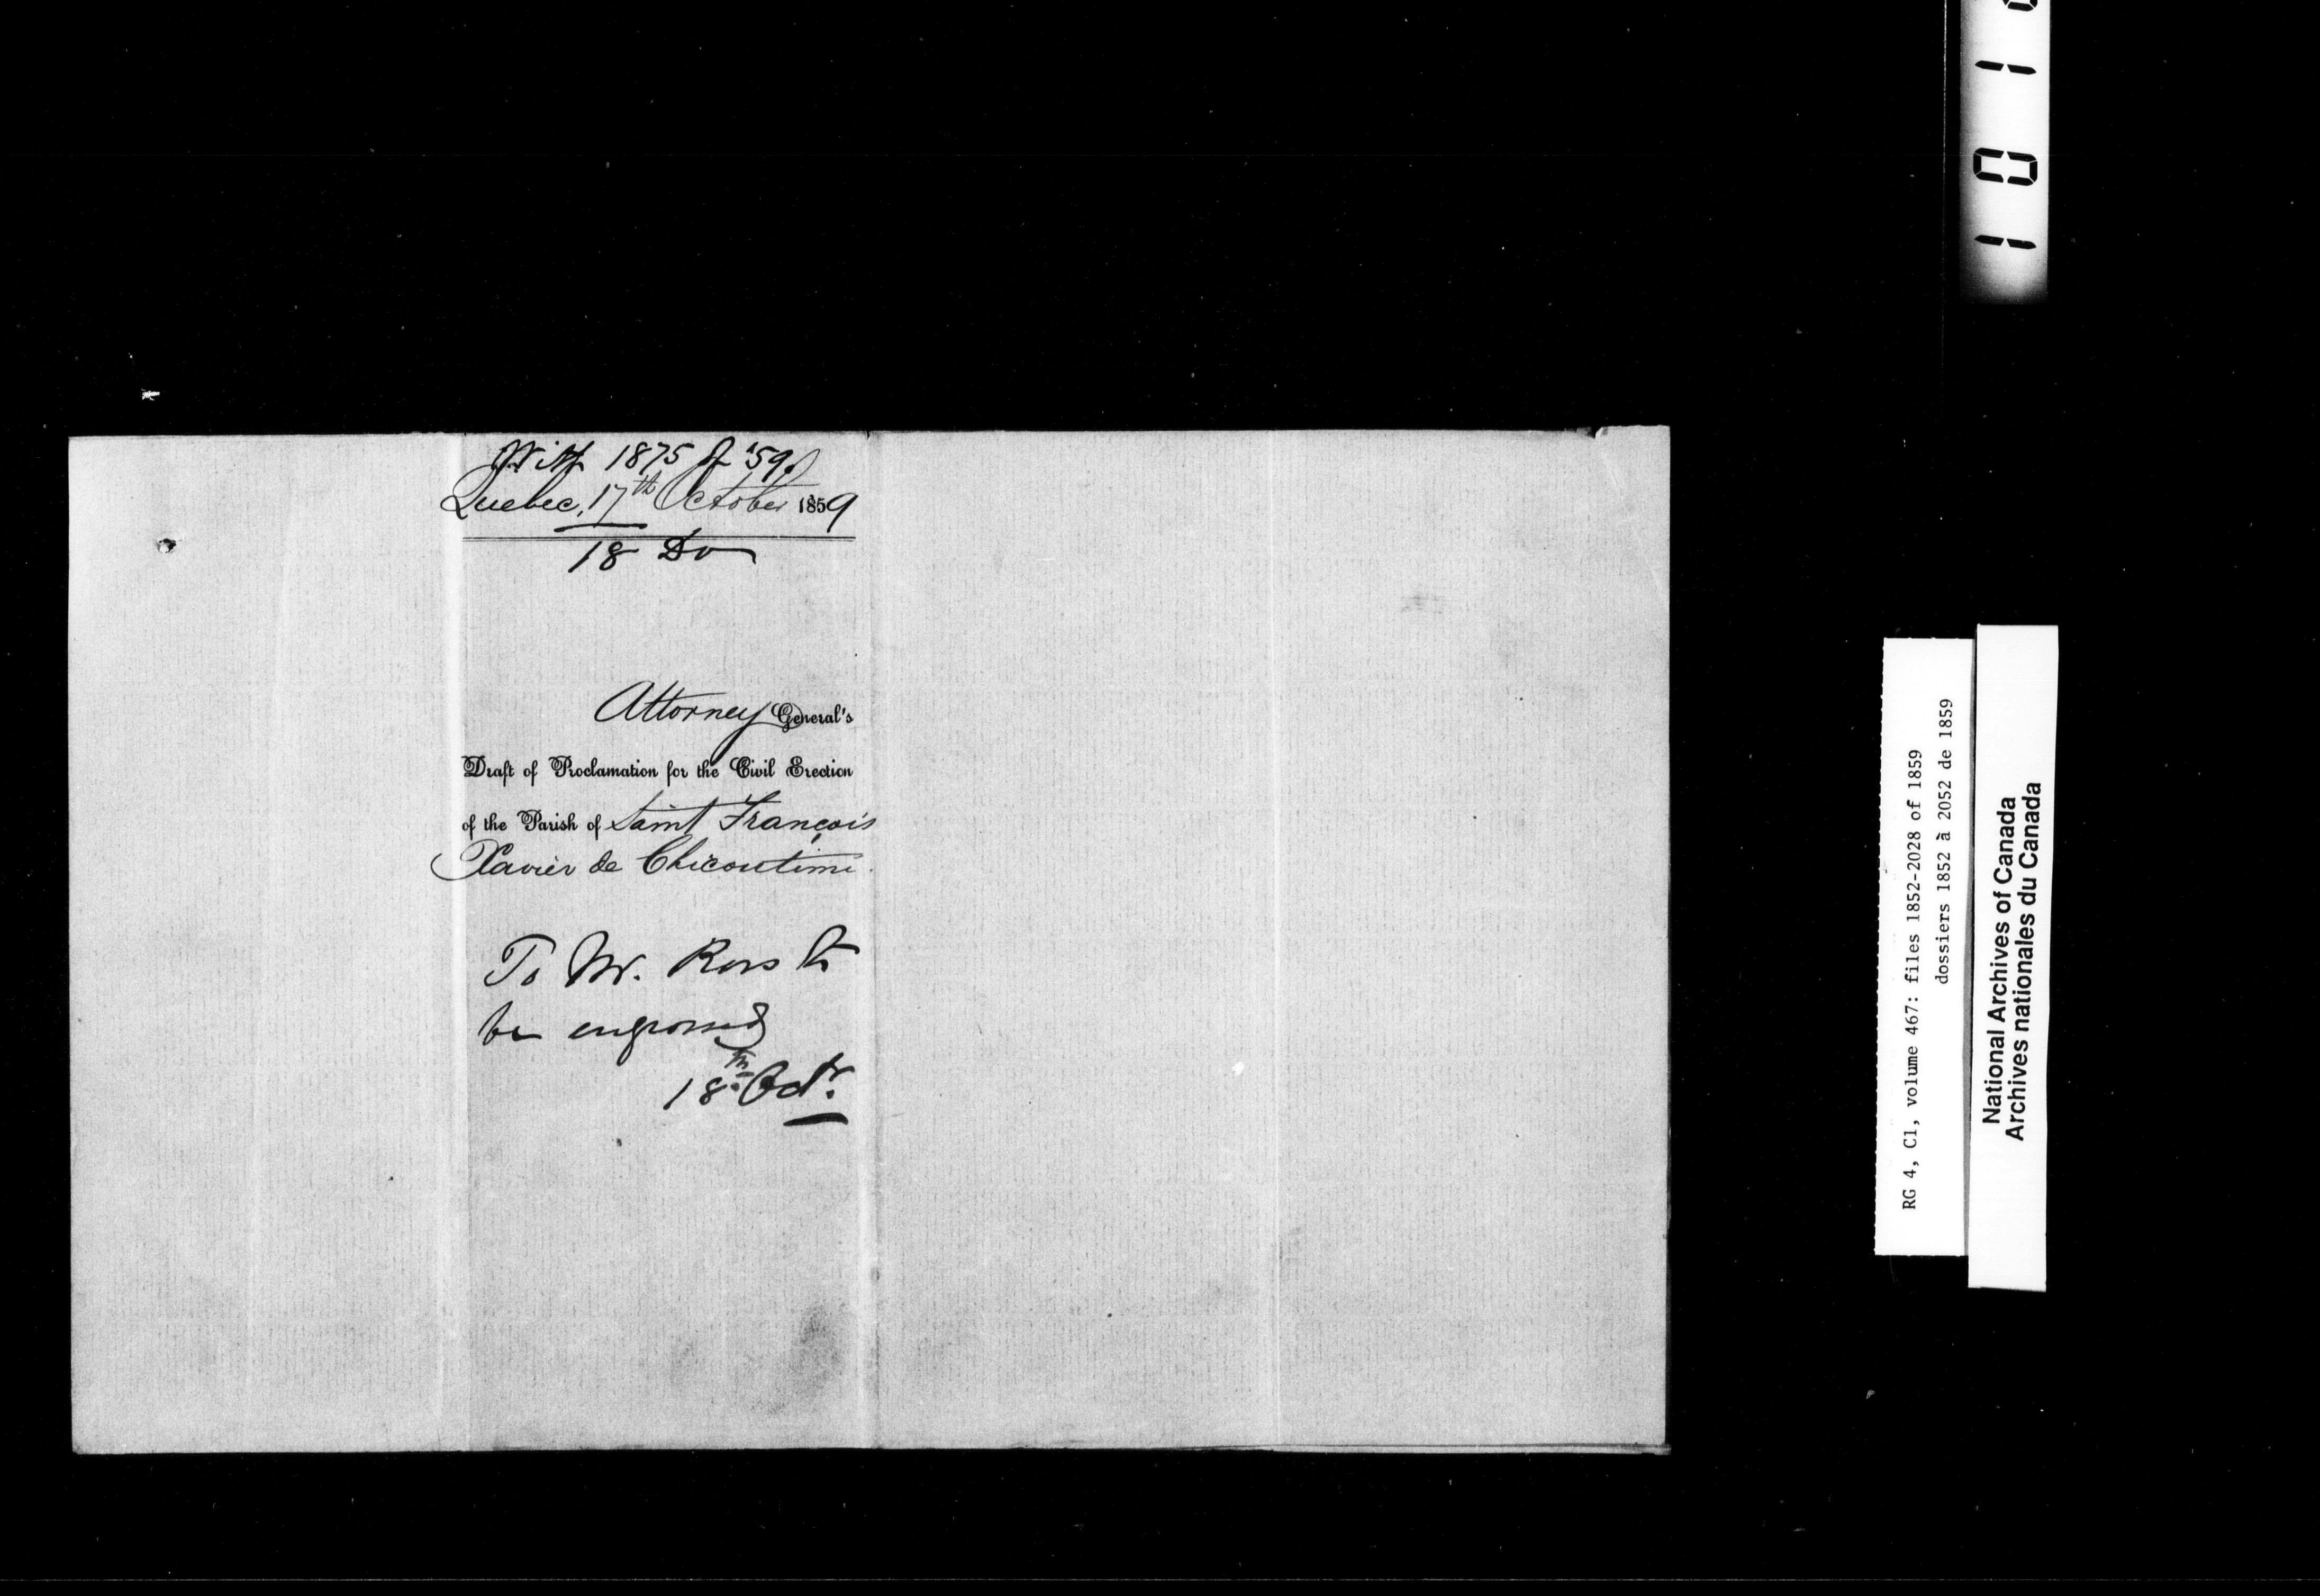 With 1875 of '59
Quebec, 17th October 1859
18 Do
Attorney General's
Draft of Proclamation for the Civil Erection
of the Parish of Saint François
Xavier de Chicoutimi.
To Mr. Ross to
be engrossed
18th Octr.
RG 4, C1, volume 467: files 1852-2028 of 1859
dossiers 1852 à 2052 de 1859
National Archives of Canada
Archives nationales du Canada
1 0 1